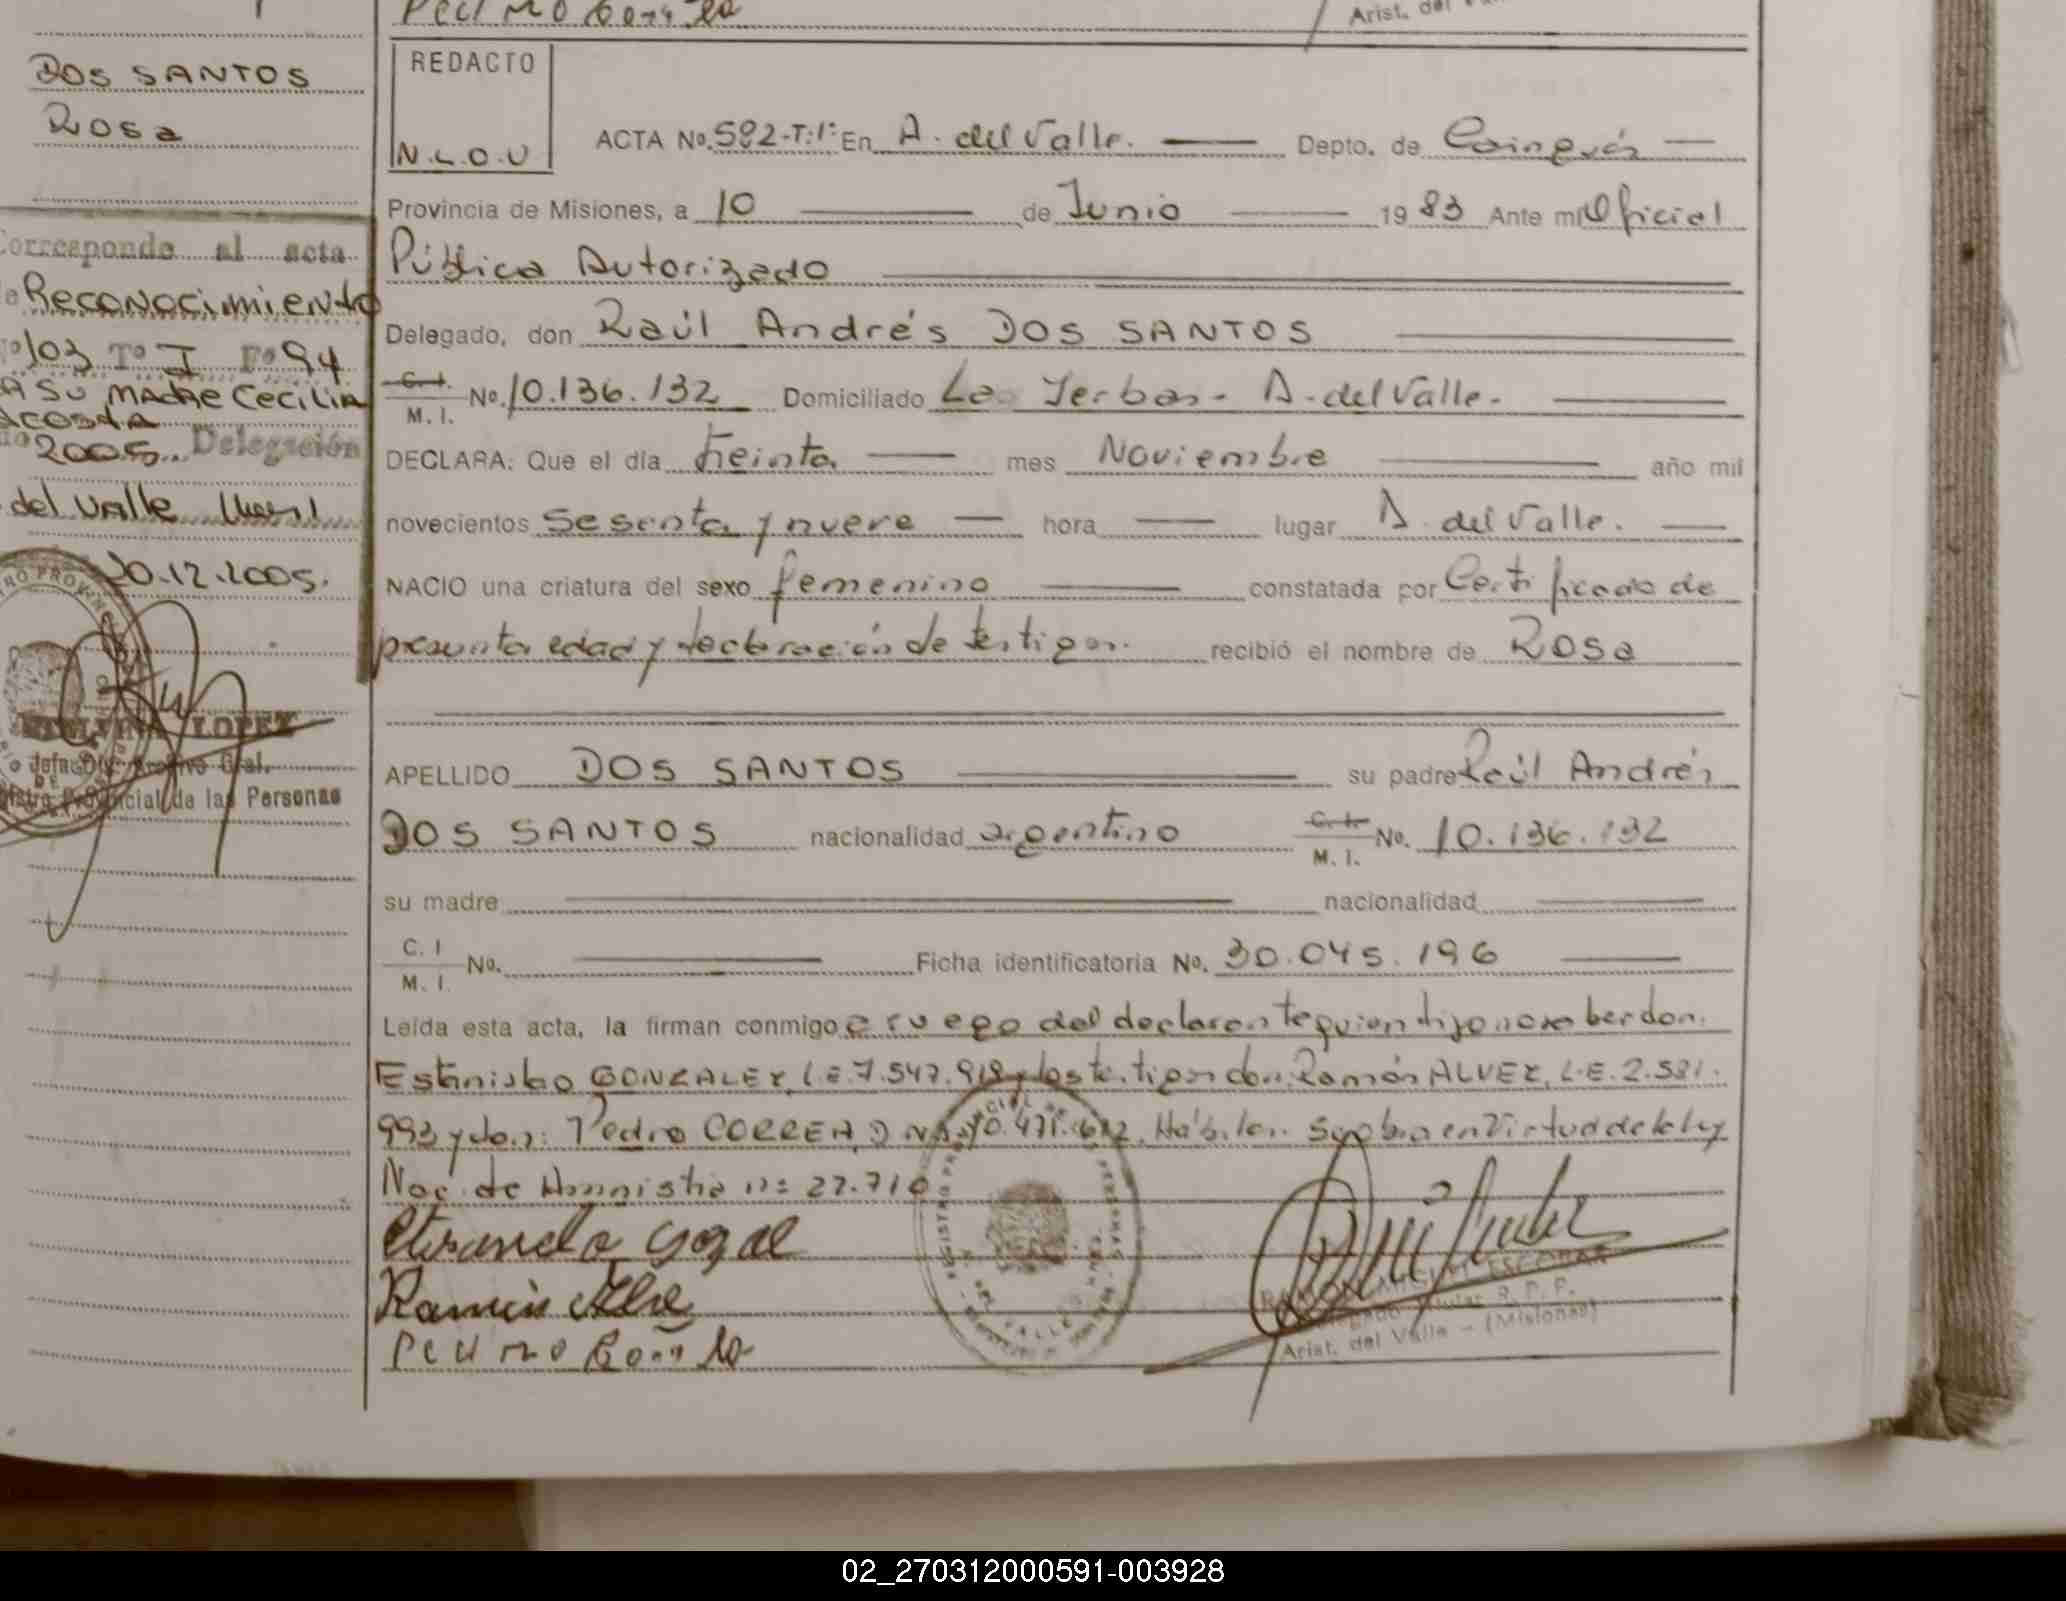 Arist. del
DOS SANTOS
Rosa
Corresponde al acta
de Reconocimiento
Nº 103 Tº I Fº 94
A su madre Cecilia
Acosta
año 2005. Delegación
del valle
20.12.2005.
LOPEZ
Jefa Dto. Archivo Gral.
Registro Provincial de las Personas
REDACTO
N.L.O.U
ACTA No. 592-T:1: En A. del Valle. Depto. de Cainguás
Provincia de Misiones, a 10 de Junio 1983 Ante mi Oficial
Público Autorizado
Delegado, don Raúl Andrés DOS SANTOS
C. I. M. I. No. 10.136.132 Domiciliado Las Yerbas - A. del Valle.
DECLARA: Que el día treinta mes Noviembre año mil
novecientos sesenta y nueve hora lugar A. del Valle.
NACIO una criatura del sexo femenino constatada por Certificado de
presunta edad y declaración de testigos. recibió el nombre de Rosa
APELLIDO DOS SANTOS su padre Raúl Andrés
DOS SANTOS nacionalidad argentino C. I. M. I. No. 10.136.132
su madre nacionalidad
C. I M. I. No. Ficha identificatoria No. 30.045.196
Leída esta acta, la firman conmigo a ruego del declarante quien dijo no saber don.
Estanislao GONZALEZ, L.E. 7.547.919 y los testigos don: Ramón ALVEZ, L.E. 2.581.
993 y don: Pedro CORREA, D.N.I. 10.471.612. Hábiles. Se obra en Virtud de la ley
Nac. de Amnistia nº 22.710
Ramón
ESCOBAR
Delegado Titular R. P. P.
Arist. del Valle - (Misiones)
02_270312000591-003928